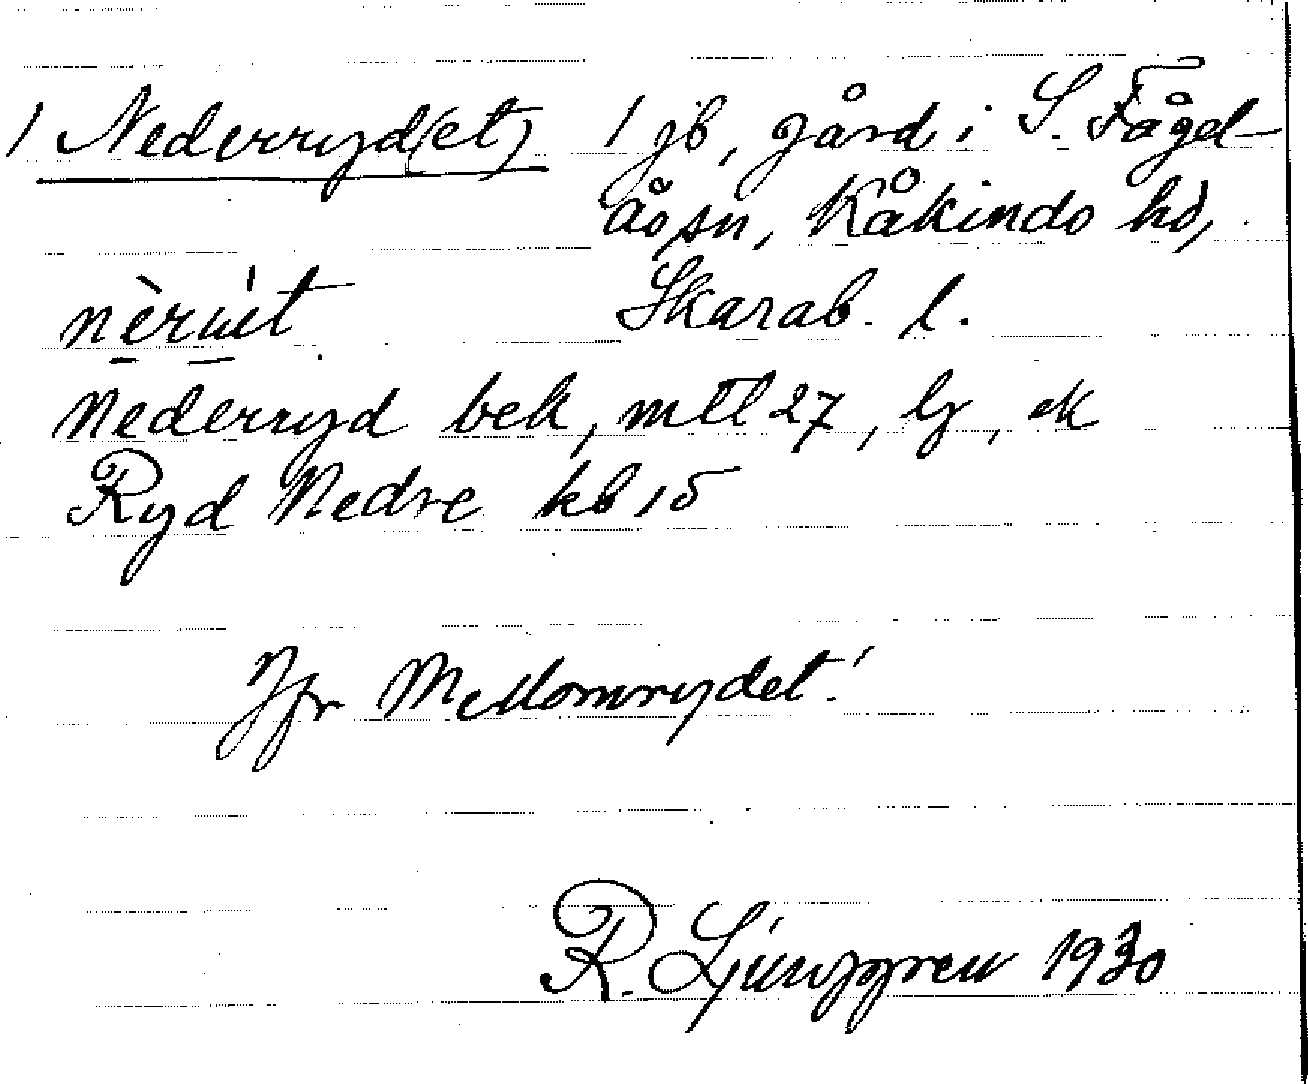 1 Nederryd(et) 1 jb, gård i S. Fågel-
ås sn, Kåkinds hd,
nèrút Skarab. l.
Nederryd bek, mtl 27, lj, ek
Ryd Nedre kb 15
Jfr Mellomrydet!
R. Ljunggren 1930